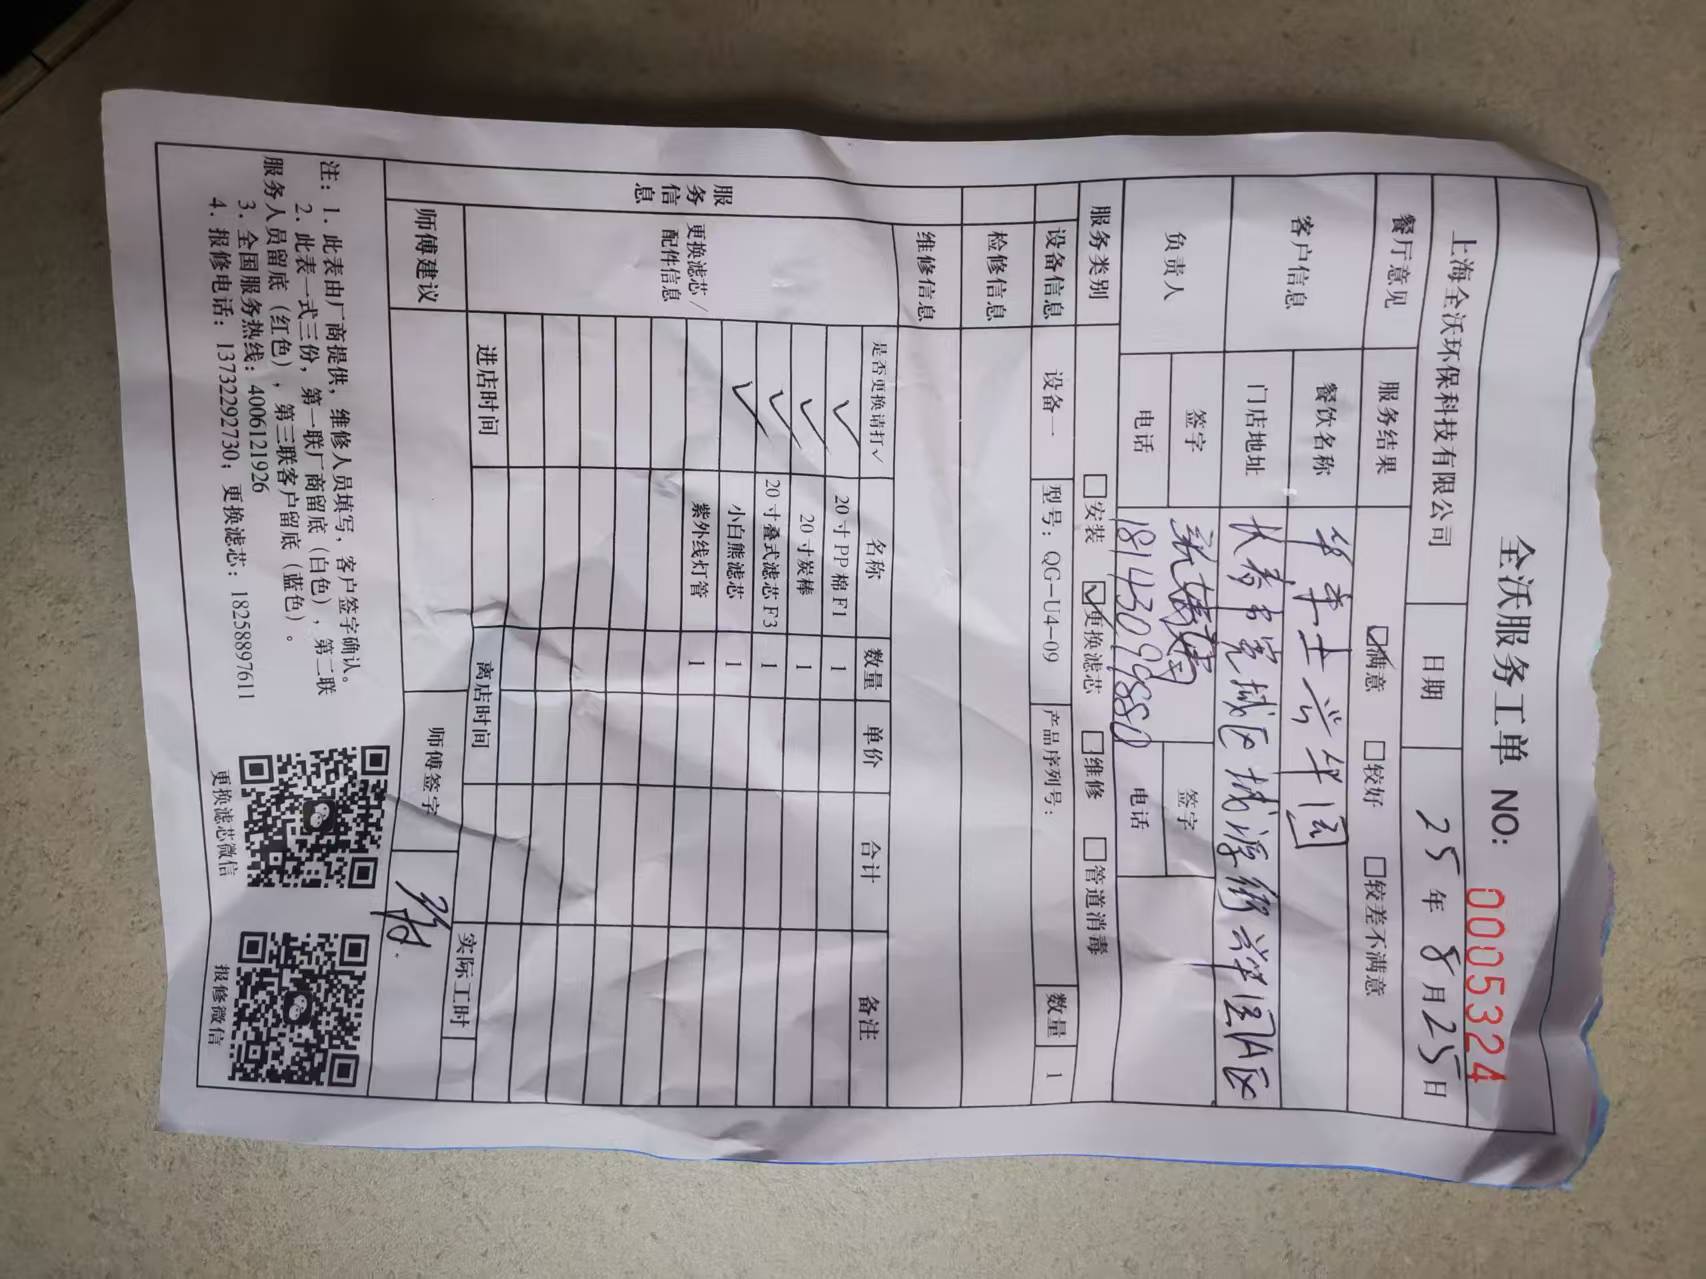 全沃服务工单 NO: 0005324
上海全沃环保科技有限公司 日期 25年8月25日
餐厅意见 服务结果 ☑满意 □较好 □较差不满意
客户信息 餐饮名称 华莱士兴华园
门店地址 长春市宽城区城源街兴华园A区
负责人 签字 签字
电话 18143099880 电话
服务类别 □安装 ☑更换滤芯 □维修 □管道消毒
设备信息 设备一 型号：QG-U4-09 产品序列号： 数量 1
检修信息
维修信息
服务信息
更换滤芯/配件信息
是否更换请打✓ 名称 数量 单价 合计 备注
✓ 20寸PP棉F1 1
✓ 20寸炭棒 1
✓ 20寸叠式滤芯F3 1
✓ 小白熊滤芯 1
紫外线灯管 1
进店时间 离店时间 实际工时
师傅建议 师傅签字
注：1. 此表由厂商提供，维修人员填写，客户签字确认。
2. 此表一式三份，第一联厂商留底（白色），第二联
服务人员留底（红色），第三联客户留底（蓝色）。
3. 全国服务热线：4006121926
4. 报修电话：13732292730；更换滤芯：18258897611
更换滤芯微信
报修微信